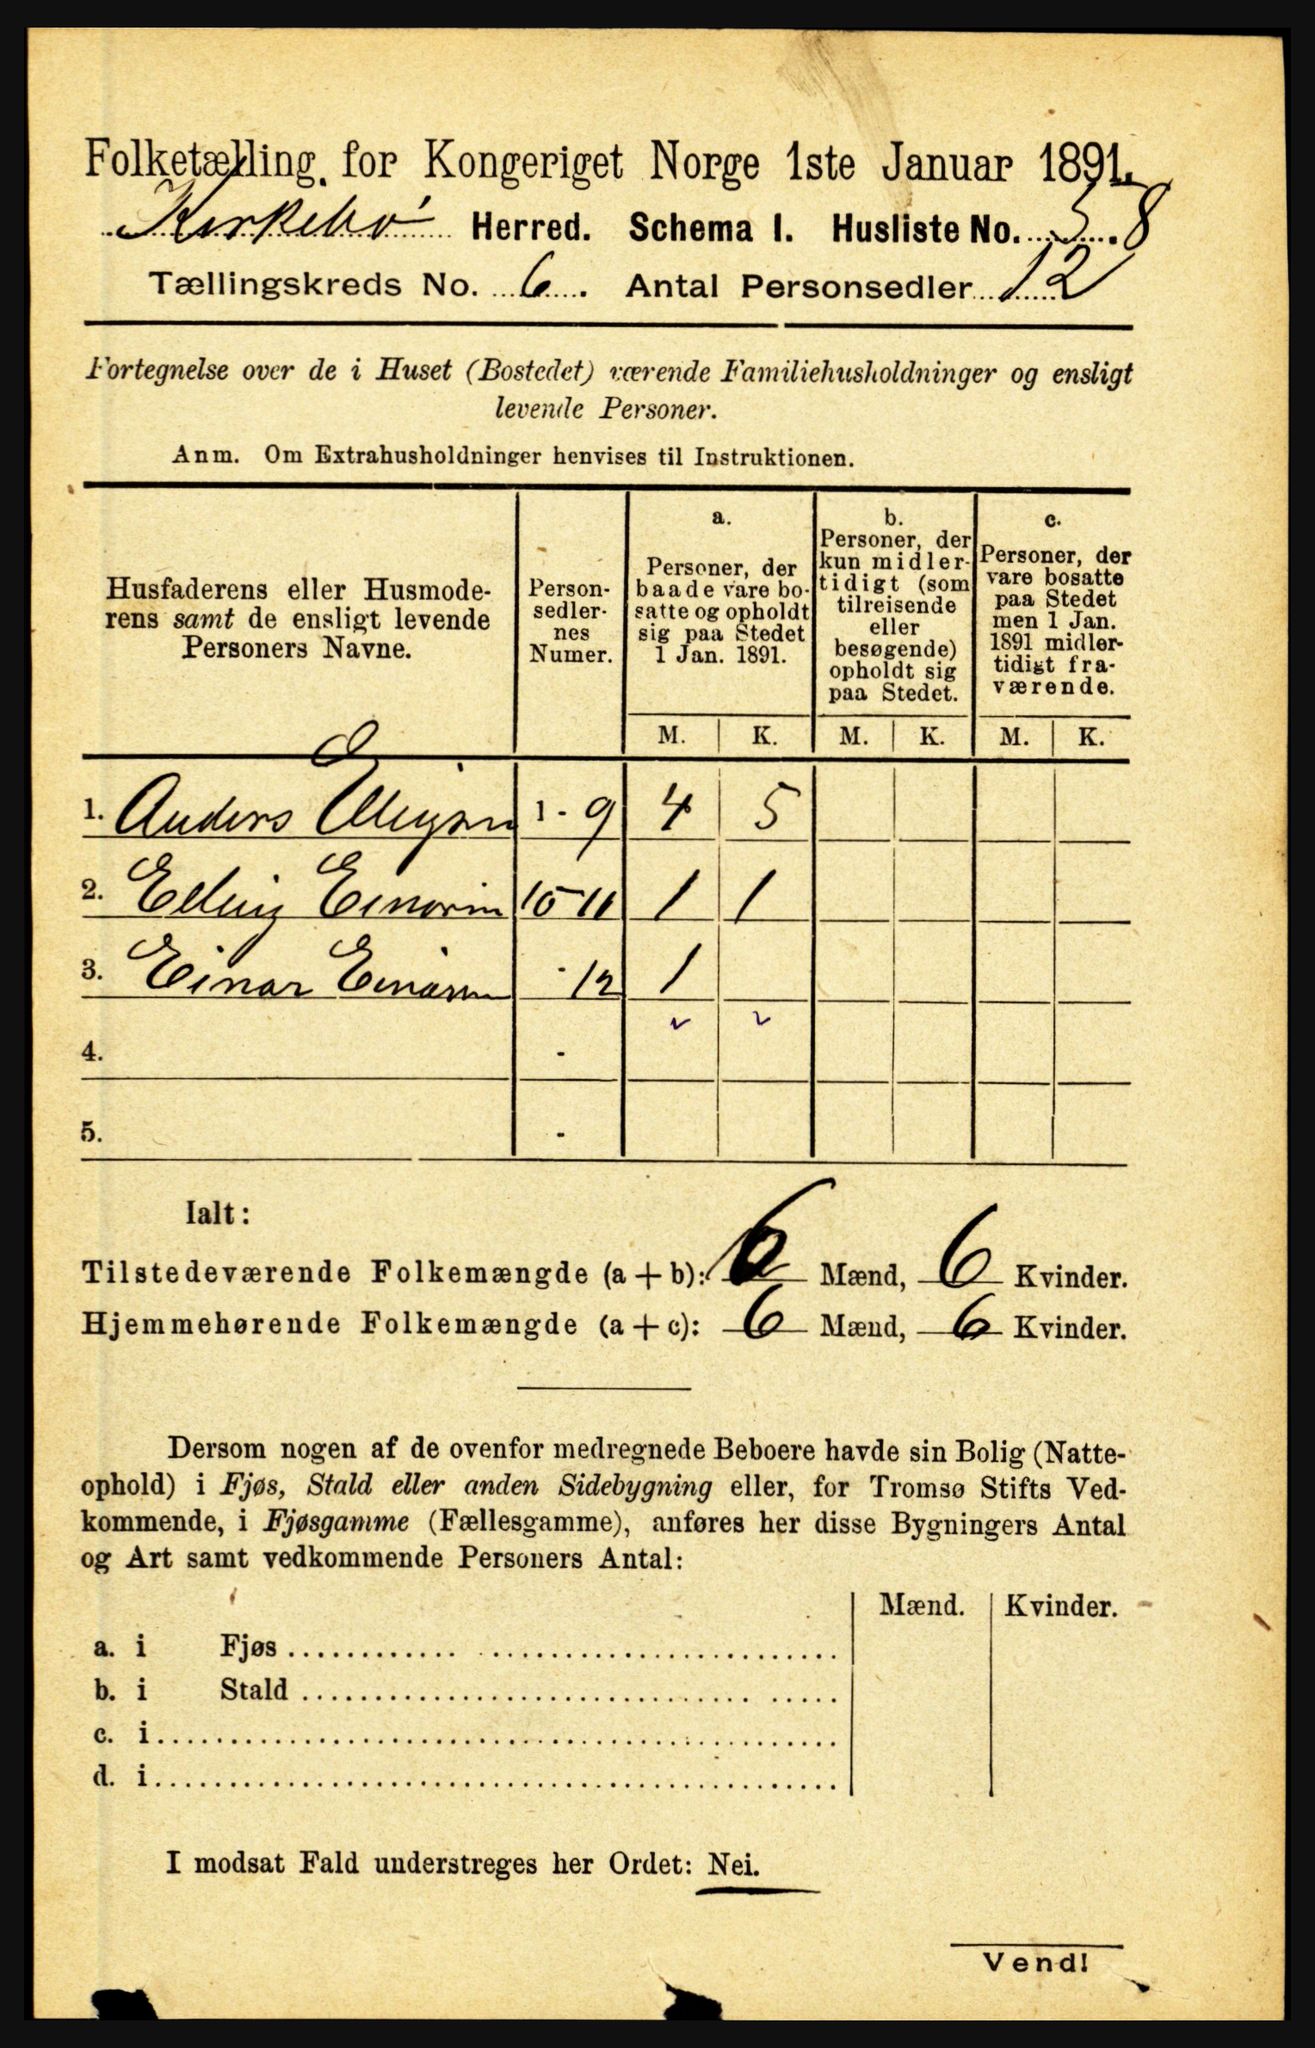 Folketælling for Kongeriget Norge 1ste Januar 1891.
Kirkebø Herred. Schema I. Husliste No. 58
Tællingskreds No. 6. Antal Personsedler 12
Fortegnelse over de i Huset (Bostedet) værende Familiehusholdninger og ensligt
levende Personer.
Anm. Om Extrahusholdninger henvises til Instruktionen.
Husfaderens eller Husmode-
rens samt de ensligt levende
Personers Navne.
Person-
sedler-
nes
Numer.
a.
Personer, der
baade vare bo-
satte og opholdt
sig paa Stedet
1 Jan. 1891.
b.
Personer, der
kun midler-
tidigt (som
tilreisende
eller
besøgende)
opholdt sig
paa Stedet.
c.
Personer, der
vare bosatte
paa Stedet
men 1 Jan.
1891 midler-
tidigt fra-
værende.
M. K. M. K. M. K.
1. Anders 1 - 9 4 5
2. Elling Einarsen 10-11 1 1
3. Einar Einarsen - 12 1
4. -
5. -
Ialt:
Tilstedeværende Folkemængde (a + b): 6 Mænd, 6 Kvinder.
Hjemmehørende Folkemængde (a + c): 6 Mænd, 6 Kvinder.
Dersom nogen af de ovenfor medregnede Beboere havde sin Bolig (Natte-
ophold) i Fjøs, Stald eller anden Sidebygning eller, for Tromsø Stifts Ved-
kommende, i Fjøsgamme (Fællesgamme), anføres her disse Bygningers Antal
og Art samt vedkommende Personers Antal:
Mænd. Kvinder.
a. i Fjøs
b. i Stald
c. i
d. i
I modsat Fald understreges her Ordet: Nei.
Vend!